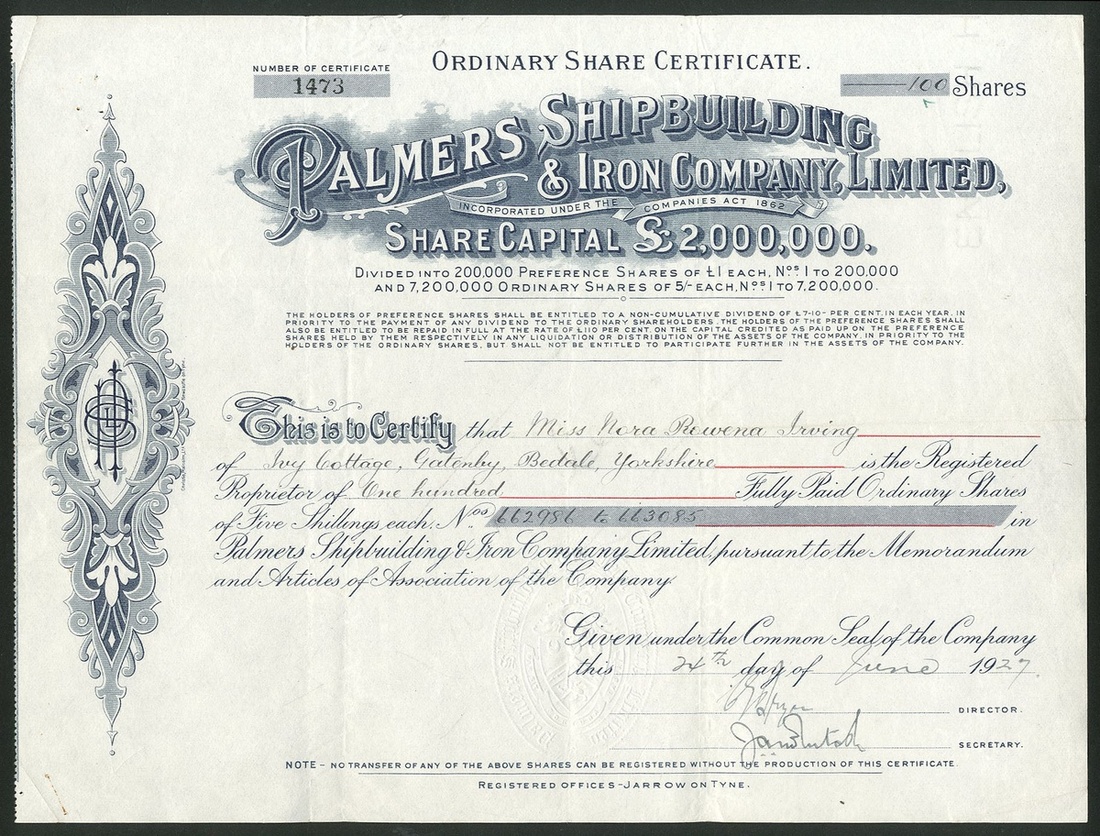 ORDINARY SHARE CERTIFICATE.
NUMBER OF CERTIFICATE
1473
100 Shares
PALMERS SHIPBUILDING
& IRON COMPANY, LIMITED,
INCORPORATED UNDER THE COMPANIES ACT 1862
SHARE CAPITAL £2,000,000.
DIVIDED INTO 200,000 PREFERENCE SHARES OF £1 EACH, Nos. 1 TO 200,000
AND 7,200,000 ORDINARY SHARES OF 5/- EACH, Nos. 1 TO 7,200,000.
THE HOLDERS OF PREFERENCE SHARES SHALL BE ENTITLED TO A NON-CUMULATIVE DIVIDEND OF £7-10- PER CENT. IN EACH YEAR, IN
PRIORITY TO THE PAYMENT OF ANY DIVIDEND TO THE ORDINARY SHAREHOLDERS. THE HOLDERS OF THE PREFERENCE SHARES SHALL
ALSO BE ENTITLED TO BE REPAID IN FULL AT THE RATE OF £110 PER CENT. ON THE CAPITAL CREDITED AS PAID UP ON THE PREFERENCE
SHARES HELD BY THEM RESPECTIVELY IN ANY LIQUIDATION OR DISTRIBUTION OF THE ASSETS OF THE COMPANY, IN PRIORITY TO THE
HOLDERS OF THE ORDINARY SHARES, BUT SHALL NOT BE ENTITLED TO PARTICIPATE FURTHER IN THE ASSETS OF THE COMPANY.
This is to Certify that Miss Nora Rowena Irving
of Ivy Cottage, Gatenby, Bedale, Yorkshire is the Registered
Proprietor of One hundred Fully Paid Ordinary Shares
of Five Shillings each, Nos 662986 to 663085 in
Palmers Shipbuilding & Iron Company Limited, pursuant to the Memorandum
and Articles of Association of the Company.
Given under the Common Seal of the Company
this 24th day of June 1927.
DIRECTOR.
SECRETARY.
NOTE – NO TRANSFER OF ANY OF THE ABOVE SHARES CAN BE REGISTERED WITHOUT THE PRODUCTION OF THIS CERTIFICATE.
REGISTERED OFFICES – JARROW ON TYNE.